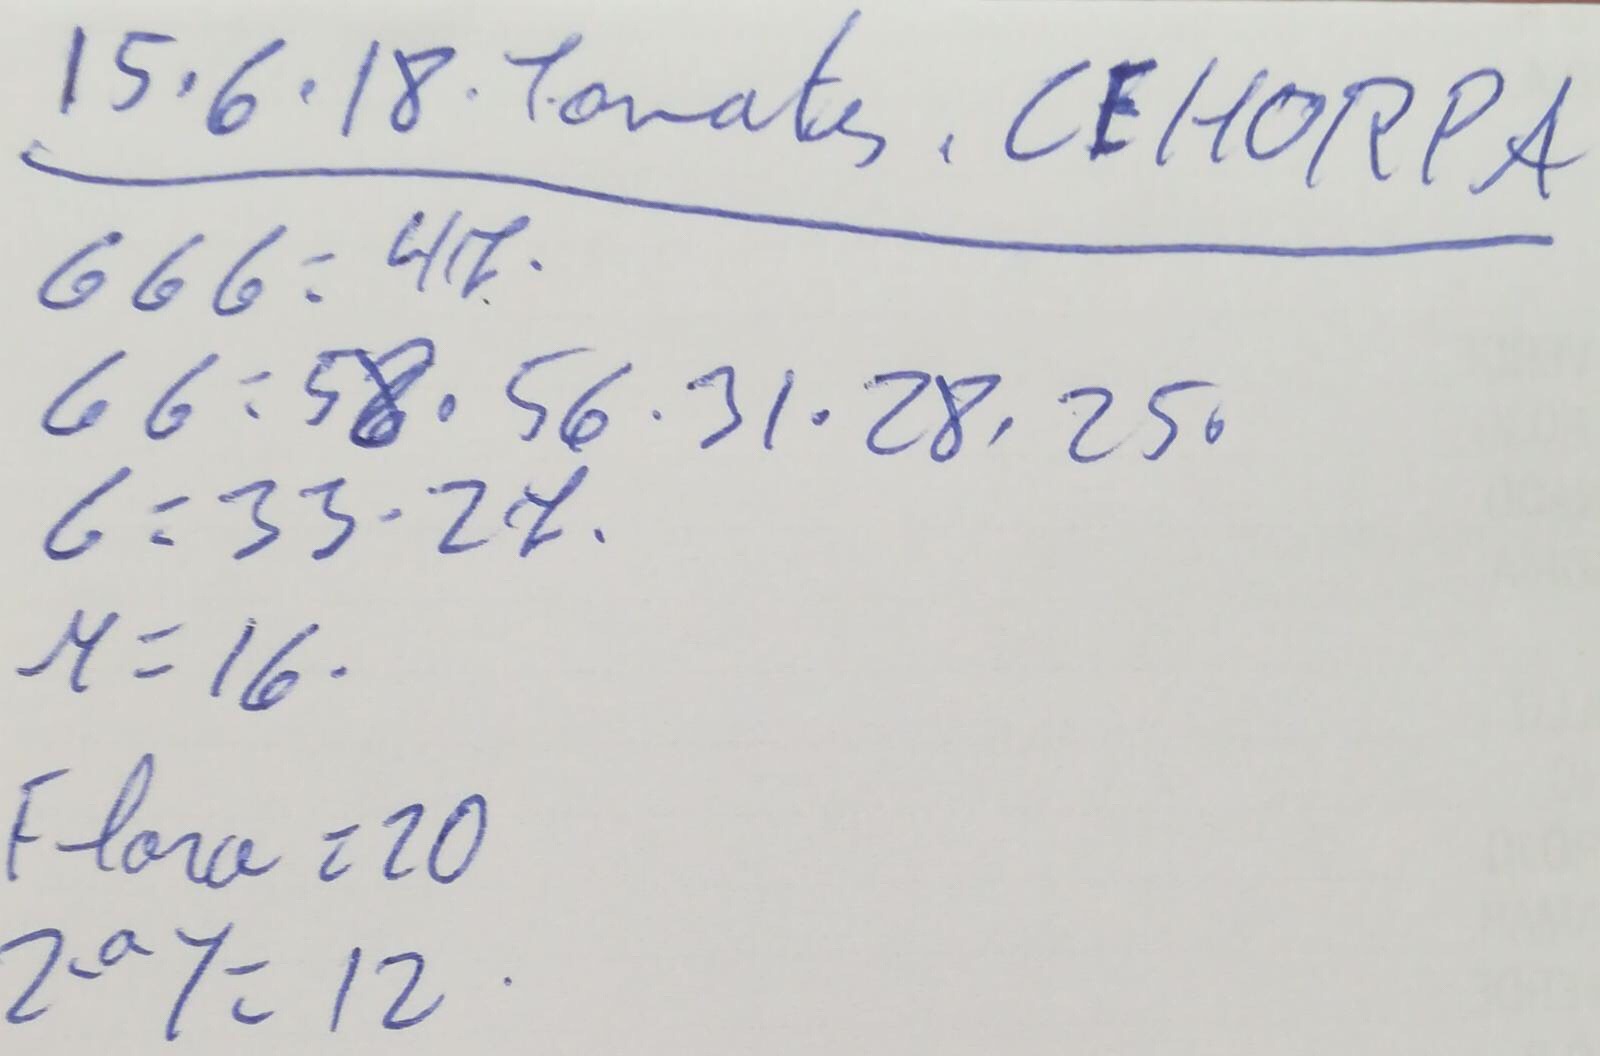 15.6.18. Tomates. CEHORPA
GGG = 47.
GG = 58. 56. 31. 28. 25.
G = 33. 27.
M = 16.
Flora = 20
2.ª Y = 12.